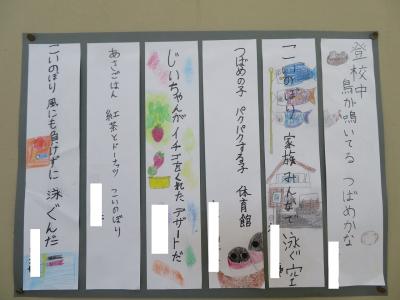 登校中 鳥が鳴いてる つばめかな
こいのぼり 家族みんなで 泳ぐ空
つばめの子 パクパクする子 体育館
じいちゃんが イチゴをくれた デザートだ
あさごはん 紅茶とドーナッツ こいのぼり
こいのぼり 風にも負けずに 泳ぐんだ